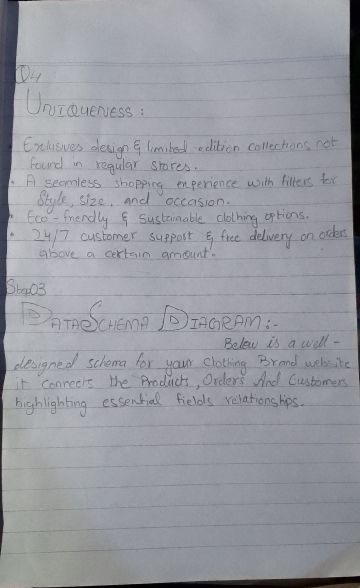 Q4
UNIQUENESS :
• Exclusives design & limited edition collections not
found in regular stores.
• A seamless shopping experience with filters for
Style, size, and occasion.
• Eco-friendly & Sustainable clothing options.
• 24/7 customer support & free delivery on orders
above a certain amount.
Step03
DATA SCHEMA DIAGRAM :-
Below is a well-
designed schema for your Clothing Brand website
it connects the Products, Orders And Customers
highlighting essential fields relationships.